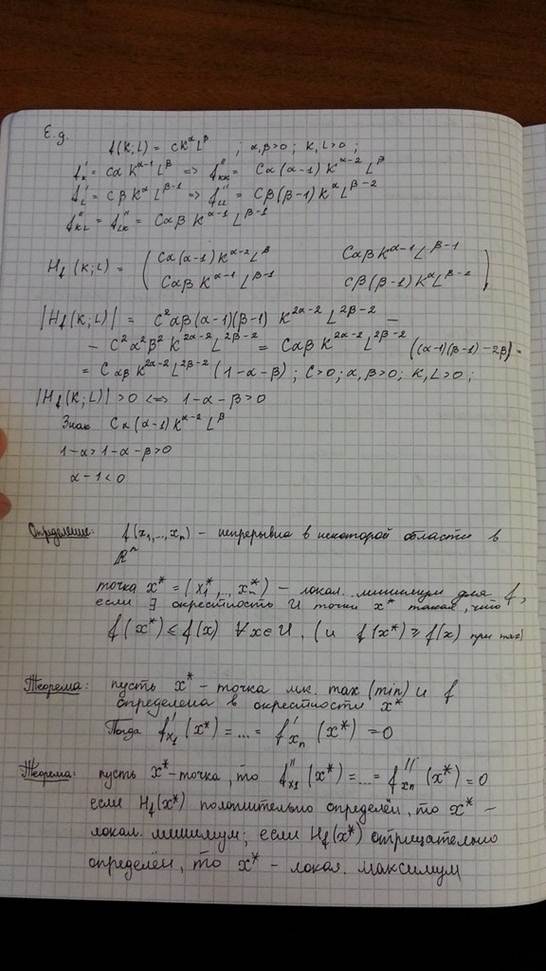 E.g.
f(K;L) = CK^α L^β ; α,β>0 ; K,L>0 ;
f'_K = Cα K^{α-1} L^β => f''_{KK} = Cα(α-1) K^{α-2} L^β
f'_L = Cβ K^α L^{β-1} => f''_{LL} = Cβ(β-1) K^α L^{β-2}
f''_{KL} = f''_{LK} = Cαβ K^{α-1} L^{β-1}
H_f (K;L) = ( Cα(α-1) K^{α-2} L^β CαβK^{α-1} L^{β-1}
Cαβ K^{α-1} L^{β-1} Cβ(β-1) K^α L^{β-2} )
|H_f (K;L)| = C²αβ(α-1)(β-1) K^{2α-2} L^{2β-2} −
− C²α²β² K^{2α-2} L^{2β-2} = Cαβ K^{2α-2} L^{2β-2} ((α-1)(β-1)-2β) =
= Cαβ K^{2α-2} L^{2β-2} (1-α-β) ; C>0 ; α,β>0 ; K,L>0 ;
|H_f(K;L)| >0 <=> 1-α-β>0
Знак Cα(α-1)K^{α-2} L^β
1-α > 1-α-β>0
α-1<0
Определение: f(x₁,..,xₙ) - непрерывна в некоторой области в
ℝⁿ
точка x* = (x₁*,..,xₙ*) - локал. минимум для f,
если ∃ окрестность U точки x* такая, что
f(x*) ≤ f(x) ∀x∈U. (и f(x*) ≥ f(x) при max)
Теорема: пусть x* - точка лок. max (min) и f
определена в окрестности x*
Тогда f'_{x₁}(x*) = ... = f'_{xₙ}(x*) = 0
Теорема: пусть x*-точка, то f''_{x₁}(x*) = ... = f''_{xₙ}(x*) = 0
если H_f(x*) положительно определён, то x* -
локал. минимум; если H_f(x*) отрицательно
определён, то x* - локал. максимум